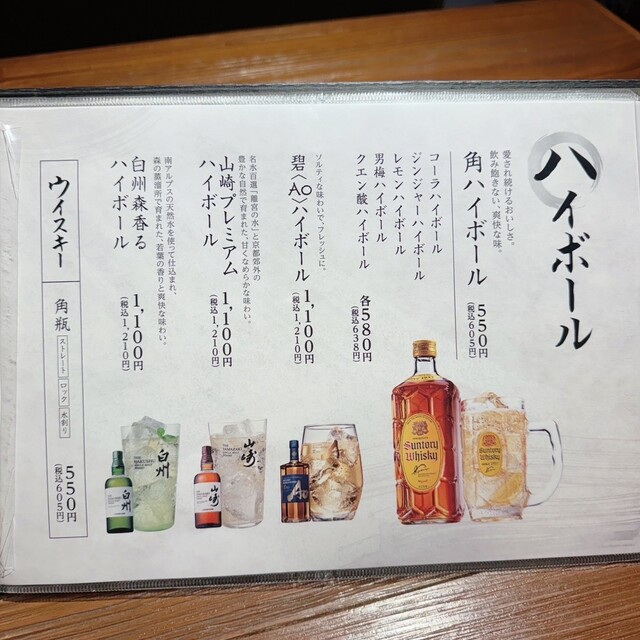 ハイボール
愛され続けるおいしさ。
飲み飽きない、爽快な味。
角ハイボール 550円
(税込605円)
コーラハイボール
ジンジャーハイボール
レモンハイボール
男梅ハイボール
クエン酸ハイボール
各580円
(税込638円)
ソルティな味わいで、フレッシュに。
碧〈AO〉ハイボール 1,100円
(税込1,210円)
名水百選「離宮の水」と京都郊外の
豊かな自然で育まれた、甘くなめらかな味わい。
山崎プレミアム
ハイボール 1,100円
(税込1,210円)
南アルプスの天然水を使って仕込まれ、
森の蒸溜所で育まれた、若葉の香りと爽快な味わい。
白州 森香る
ハイボール 1,100円
(税込1,210円)
ウイスキー
角瓶 ストレート ロック 水割り 550円
(税込605円)
Suntory
Whisky
Suntory
Whisky
AO
山崎
山崎
白州
白州